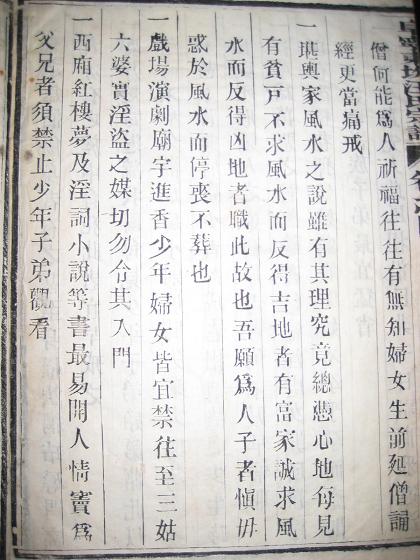 僧何能爲人祈福往往有無知婦女生前延僧誦
經更當痛戒
一堪輿家風水之說雖有其理究竟總憑心地每見
有貧戸不求風水而反得吉地者有富家誠求風
水而反得凶地者職此故也吾願爲人子者愼毋
惑於風水而停喪不葬也
一戲場演劇廟宇進香少年婦女皆宜禁往至三姑
六婆實淫盜之媒切勿令其入門
一西廂紅樓夢及淫詞小說等書最易開人情竇爲
父兄者須禁止少年子弟觀看